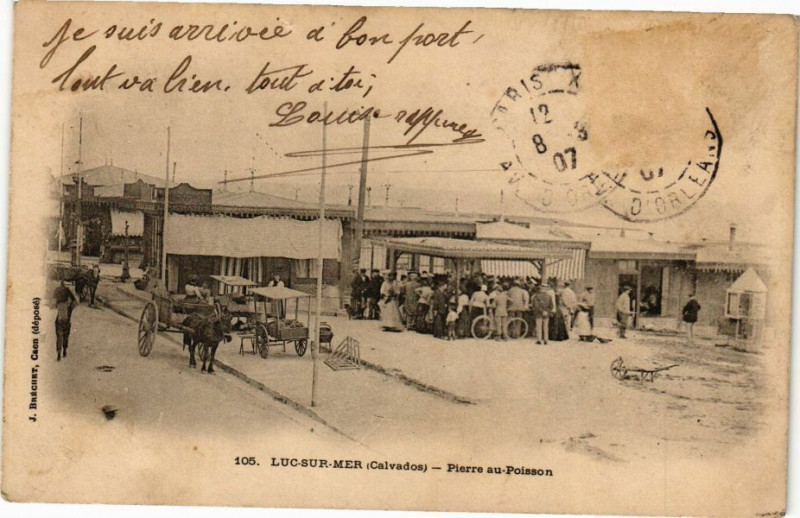 Je suis arrivée à bon port,
tout va bien. tout à toi,
Louise
PARIS X
12
8 - 8
07
AV. D'ORLÉANS
07
AV. D'ORLEANS
J. BRÉCHET, Caen (déposé)
105. LUC-SUR-MER (Calvados) — Pierre au-Poisson